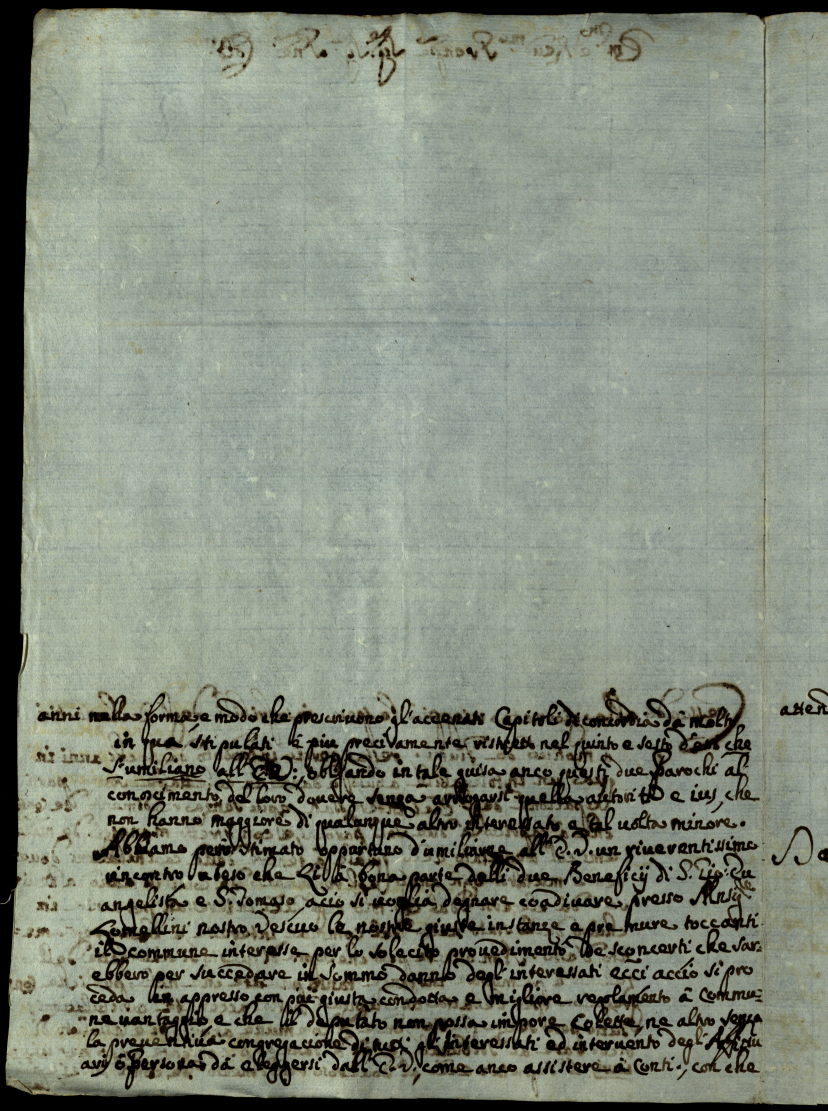 anni nella forma, e modo che prescrivono gl'accennati Capitoli di concordia da molti
in qua stipulati e piu precisamente ristretti nel quinto e sesto d'essi che
s'umiliano all'E.V., obligando in tale guisa anco questi due Parochi al
conoscimento del loro dovere senza arrogarsi quella autorità e ius, che
non hanno maggiore di qualunque altro interessato, e tal volta minore.
Abbiamo però stimato opportuno d'umiliarne all'E.V. un riverentissimo
rincontro atteso che la bona parte delli due Beneficij di S. Gio: Eu
angelista e S. Tomaso, acciò si voglia degnare coadiuvare presso Monsig.re
Lomellini nostro Vescovo le nostre giuste instanze e premure toccanti
il commune interesse per lo solecito provedimento de sconcerti che sar=
ebbero per succedere in sommo danno degl'interessati ecci acciò si pro
ceda in appresso con più giusta condotta e migliore regolamento à commu=
ne vantaggio e che il deputato non possa impore Colette, ne altro senza
la preventiva congregacione di tutti gl'Interessati ed intervento degl'
arij ò Persona da eleggersi dall'E.V., come anco assistere à Conti, con che
atten